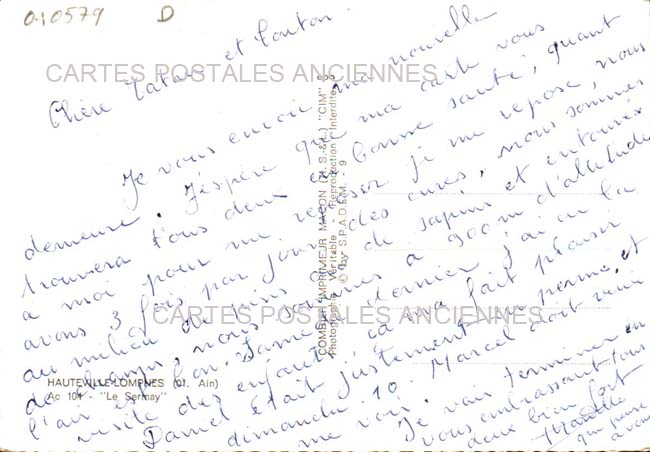 010579 D
Chère Tata et tonton.
Je vous envoie ma nouvelle
demeure. J'éspère que ma carte vous
trouvera tous deux en bonne santé, quant
a moi pour me reposer je me repose, nous
avons 3 fois par jour des cures, nous sommes
au milieu de pins de sapins et entourés
de champs, nous sommes a 900m d'altitude
l'air est bon. Samedi dernier j'ai eu la
visite des enfants, ça m'a fait plaisir
Daniel était justement en perme, et
dimanche 10 Marcel doit venir
me voir. Je vais terminer en
vous embrassant tous
deux bien fort
qui pense
a vous
CARTES POSTALES ANCIENNES
CARTES POSTALES ANCIENNES
HAUTEVILLE-LOMPNES (01. Ain)
Ac 104 - "Le Sermay"
COMBIER IMPRIMEUR MACON (71. S.-&-L.) "CIM"
Photographie Véritable - Reproduction Interdite
© by S.P.A.D.E.M. - 9